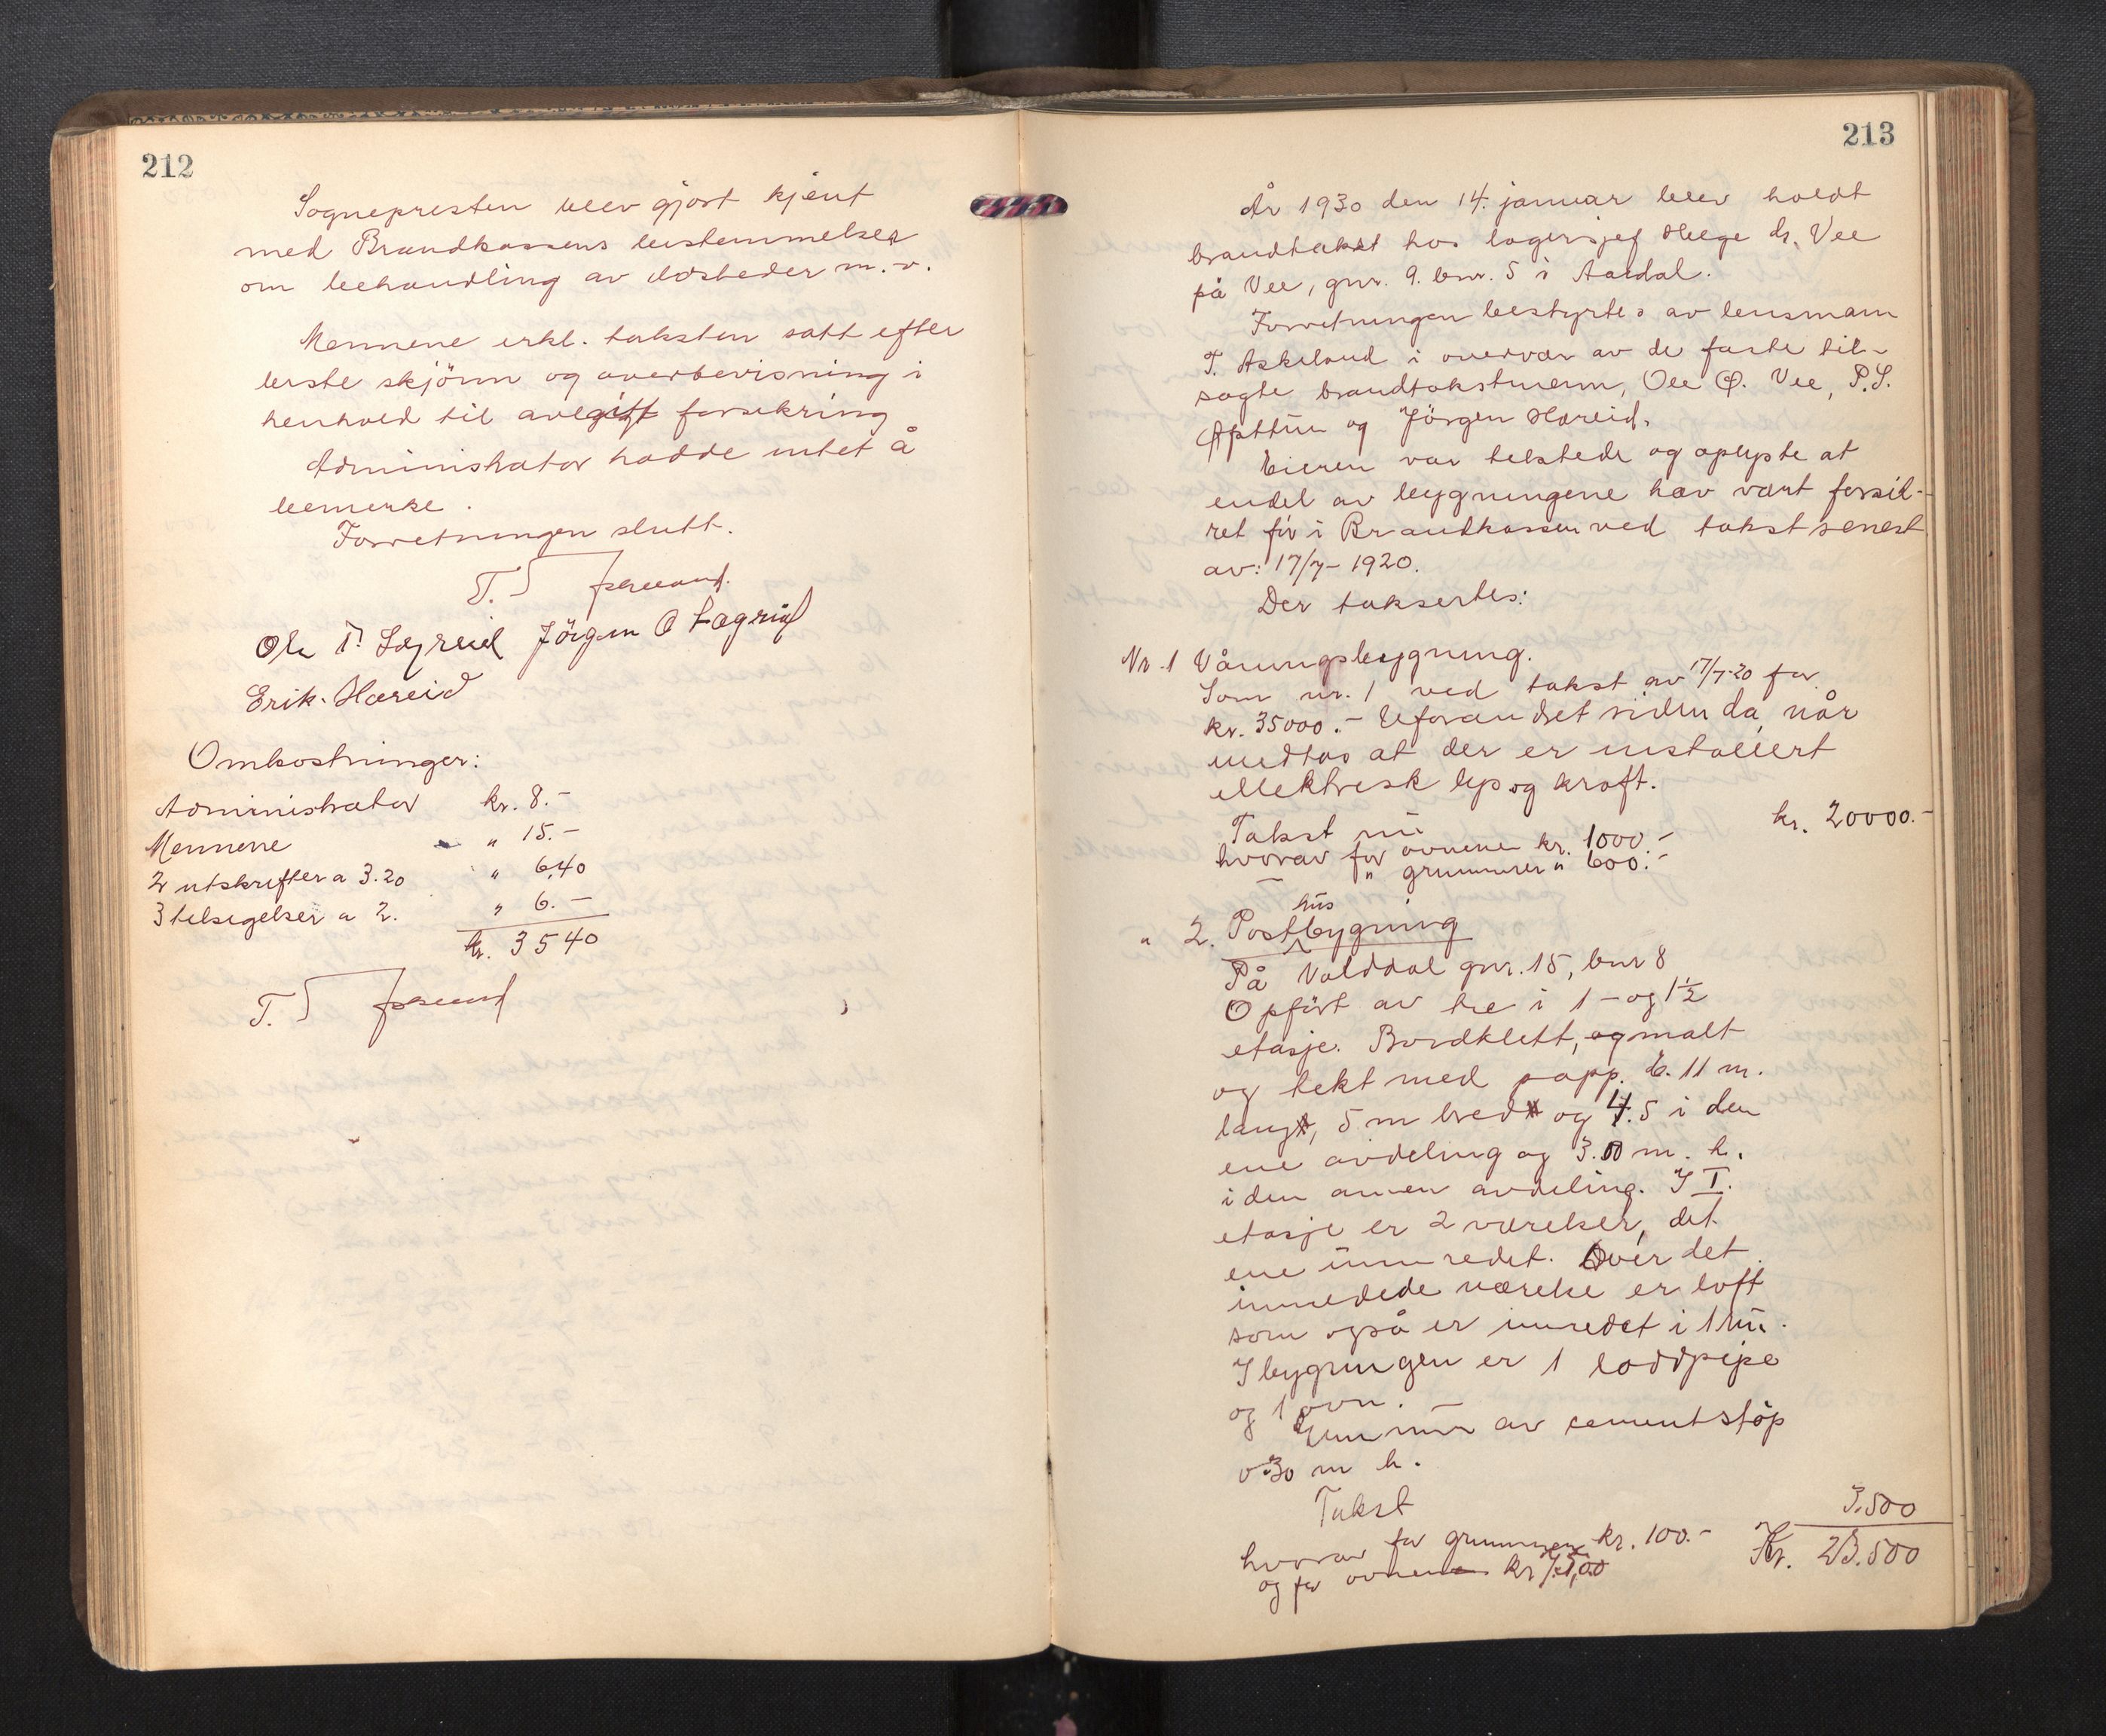 212
Sognepresten blev gjort kjent
med Brandkassens bestemmelser
om behandling av ildsteder m.v.
Mennene erkl. taksten satt efter
beste skjönn og overbevisning i
henhold til avlagt forsikring
Administrator hadde intet å
bemerke.
Forretningen slutt.
T. Askeland.
Ole T. Lægreid Jörgen O Lægreid
Erik Hæreid
Omkostninger:
Administrator kr. 8.-
Mennene " 15.-
2 utskrifter a 3.20 " 6,40
3 tilsigelser a 2. " 6.-
kr. 35 40
T. Askeland
213
År 1930 den 14. januar blev holdt
brandtakst hos lagersjef Helge H. Vee
på Vee, gnr. 9. bnr. 5 i Aardal.
Forretningen bestyrtes av lensmann
T. Askeland i overvær av de faste til-
sagte brandtakstmenn, Ole Ø. Vee, P.S.
Opttun og Jörgen Hæreid.
Eieren var tilstede og oplyste at
endel av bygningene har vært forsik-
ret för i Brandkassen ved takst senest
av: 17/7-1920.
Der taksertes:
Nr. 1 Våningsbygning.
Som nr. 1 ved takst av 17/7-20 for
kr. 35000.- Uforandret siden da, når
undtas at der er installert
ellektrisk lys og kraft.
Takst nu kr. 20000.-
hvorav for ovnene kr. 1000.-
" grunnmuren " 600.-
" 2. Posthusbygning
På Volddal gnr. 15, bnr 8
Opfört av tre i 1- og 1½
etasje. Bordklett, og malt
og tekt med papp. Er 11 m.
lang, 5 m bred og 4.5 i den
ene avdeling og 3.00 m. h.
i den annen avdeling. I I.
etasje er 2 værelser, det
ene innredet. Over det
innredede værelse er loft
som også er innredet i 1 rum.
I bygningen er 1 loddpipe
og 1 ovn.
Grunnmur av cementstöp
0.30 m h.
Takst 3.500
hvorav for grunnmuren kr. 100.- Kr. 23.500
og for ovnen kr 75,00